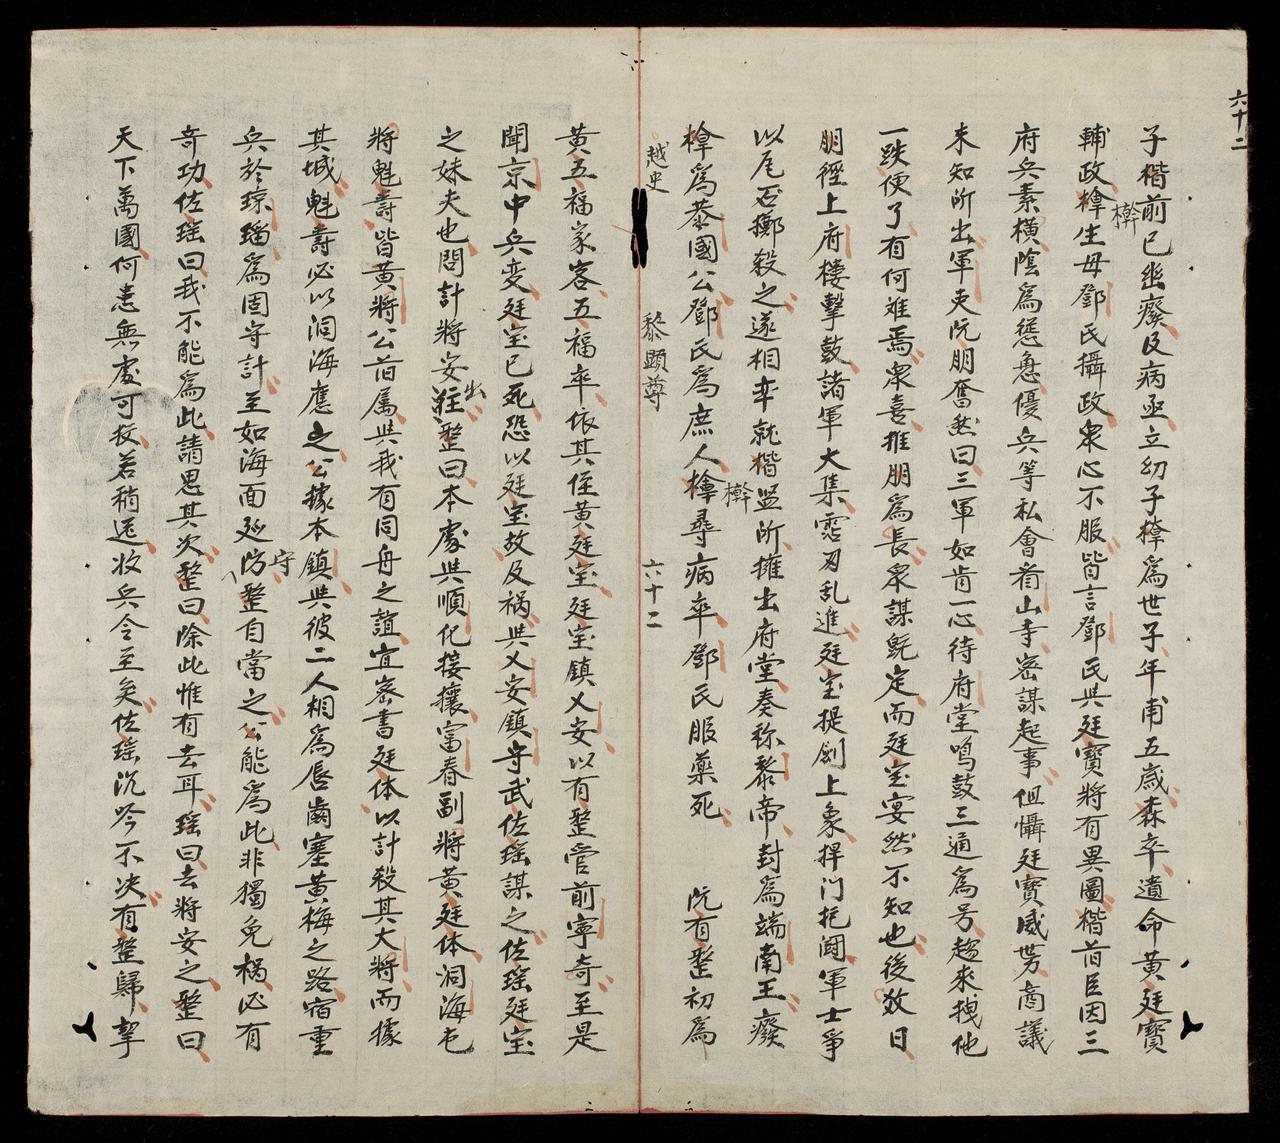 六十二
子楷前已幽廢及病亟立幼子檊為世子年甫五歲森卒遺命黃廷寶
輔政檊生母鄧氏攝政衆心不服皆言鄧氏與廷寶將有異圖楷旧臣因三
檊
府兵素橫陰為慫恿優兵等私會看山寺密謀起事但懾廷寶威势商議
未知所出軍吏阮朋奮然曰三軍如肯一心待府堂鳴鼓三通為号趨來拽他
一跌便了有何难焉衆喜推朋為長衆謀既定而廷宝宴然不知也後数日
朋徑上府樓擊鼓諸軍大集露刃乱進廷宝提劍上象捍门拒鬪軍士爭
以尾石擲殺之遂相率就楷盟所擁出府堂奏称黎帝封為端南王廢
檊為恭國公鄧氏為庶人檊尋病卒鄧氏服藥死 阮有整初為
檊
越史 黎顯尊 六十二
黃五福家客五福卒依其侄黃廷宝廷宝鎮乂安以有整管前寧奇至是
聞京中兵变廷宝已死恐以廷宝故及祸與乂安鎮守武佐瑶謀之佐瑶廷宝
之妹夫也問計將安出整曰本處與順化接攘富春副將黃廷体洞海屯
將魁壽皆黃將公旧属與我有同舟之誼宜密書廷体以計殺其大將而據
其城魁壽必以洞海應之公據本鎮與彼二人相為唇齒塞黃梅之路宿重
兵於琼瑠為固守計至如海面延防守整自當之公能為此非獨免祸必有
奇功佐瑶曰我不能為此請思其次整曰除此惟有去耳瑶曰去將安之整曰
天下萬國何患無處可投若稍迟收兵令至矣佐瑶沉吟不决有整歸挈